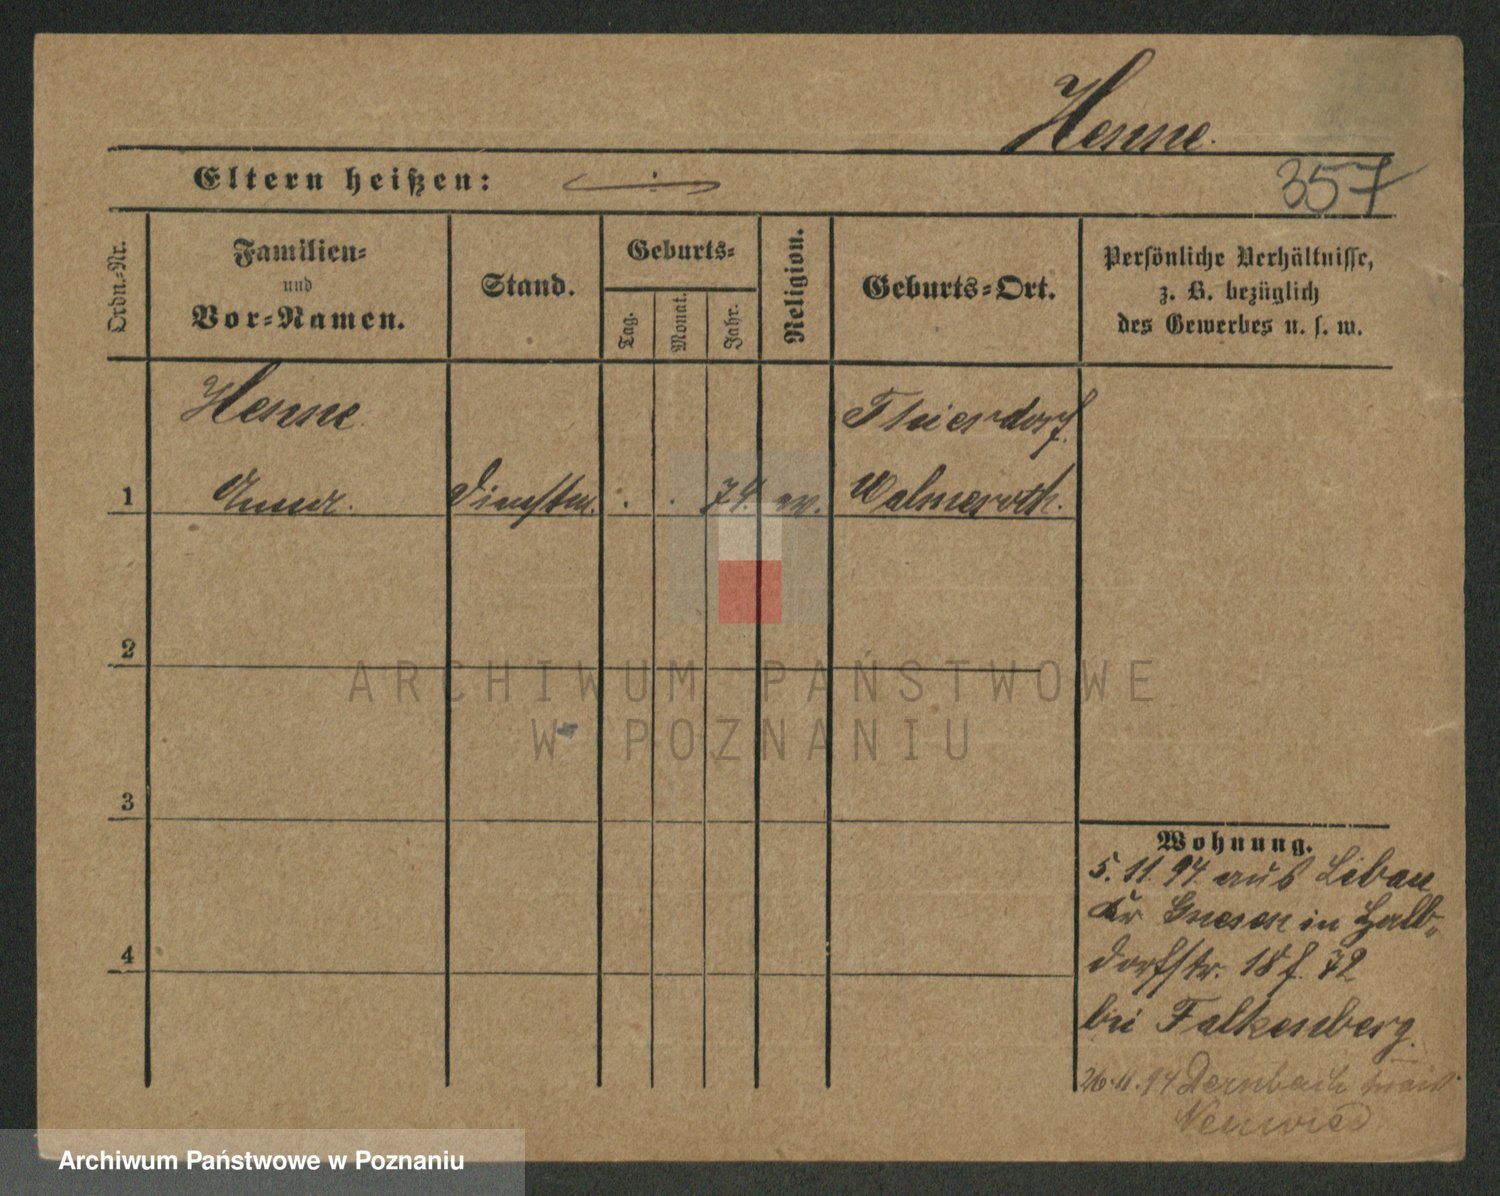 Henne.
357
Eltern heißen:
Ordn.-Nr.
Familien-
und
Vor-Namen.
Stand.
Geburts-
Tag.
Monat.
Jahr.
Religion.
Geburts-Ort.
Persönliche Verhältnisse,
z. B. bezüglich
des Gewerbes u. s. w.
Henne
Thierdorf.
1
Anna.
Dienstm.
74.
ev.
Walmeroth.
2
ARCHIWUM PAŃSTWOWE
W POZNANIU
3
4
Wohnung.
5. 11. 94. aus Libau
Kr Gnesen in Halb-
dorfstr. 18 f. 72
bei Falkenberg.
26.11.94 Dernbach
Neuwied
Archiwum Państwowe w Poznaniu